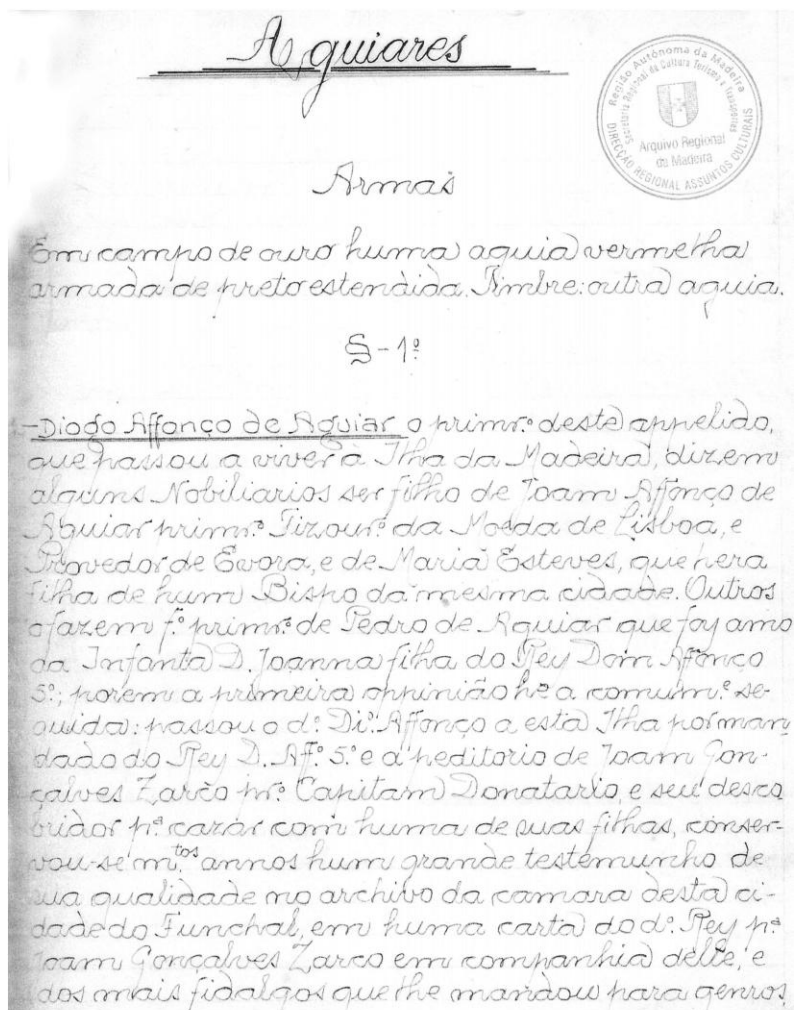 Aguiares
Região Autónoma da Madeira
Secretaria Regional da Cultura Turismo e
Arquivo Regional
da Madeira
DIRECÇÃO REGIONAL ASSUNTOS CULTURAIS
Armas
Em campo de ouro huma aguia vermelha
armada de preto estendida. Timbre: outra aguia.
§-1º
-Diogo Affonço de Aguiar o primr.º deste appelido,
que passou a viver à Ilha da Madeira, dizem
alguns Nobiliarios ser filho de Joam Affonço de
Aguiar primr.º Tizour.º da Moeda de Lisboa, e
Provedor de Evora, e de Maria Esteves, que hera
filha de hum Bispo da mesma cidade. Outros
o fazem f.º primr.º de Pedro de Aguiar que foy amo
da Infanta D. Joanna filha do Rey Dom Affonço
5º; porem a primeira oppinião he a comum.e se-
guida: passou o d.º Di.º Affonço a esta Ilha por man
dado do Rey D. Aff.º 5.º e a peditorio de Joam Gon-
çalves Zarco pr.º Capitam Donatario, e seu desco
bridor p.ª cazar com huma de suas filhas, conser-
vou-se m.tos annos hum grande testemunho de
sua qualidade no archivo da camara desta ci-
dade do Funchal, em huma carta do d.º Rey p.ª
Joam Gonçalves Zarco em companhia delle, e
dos mais fidalgos que lhe mandou para genros,